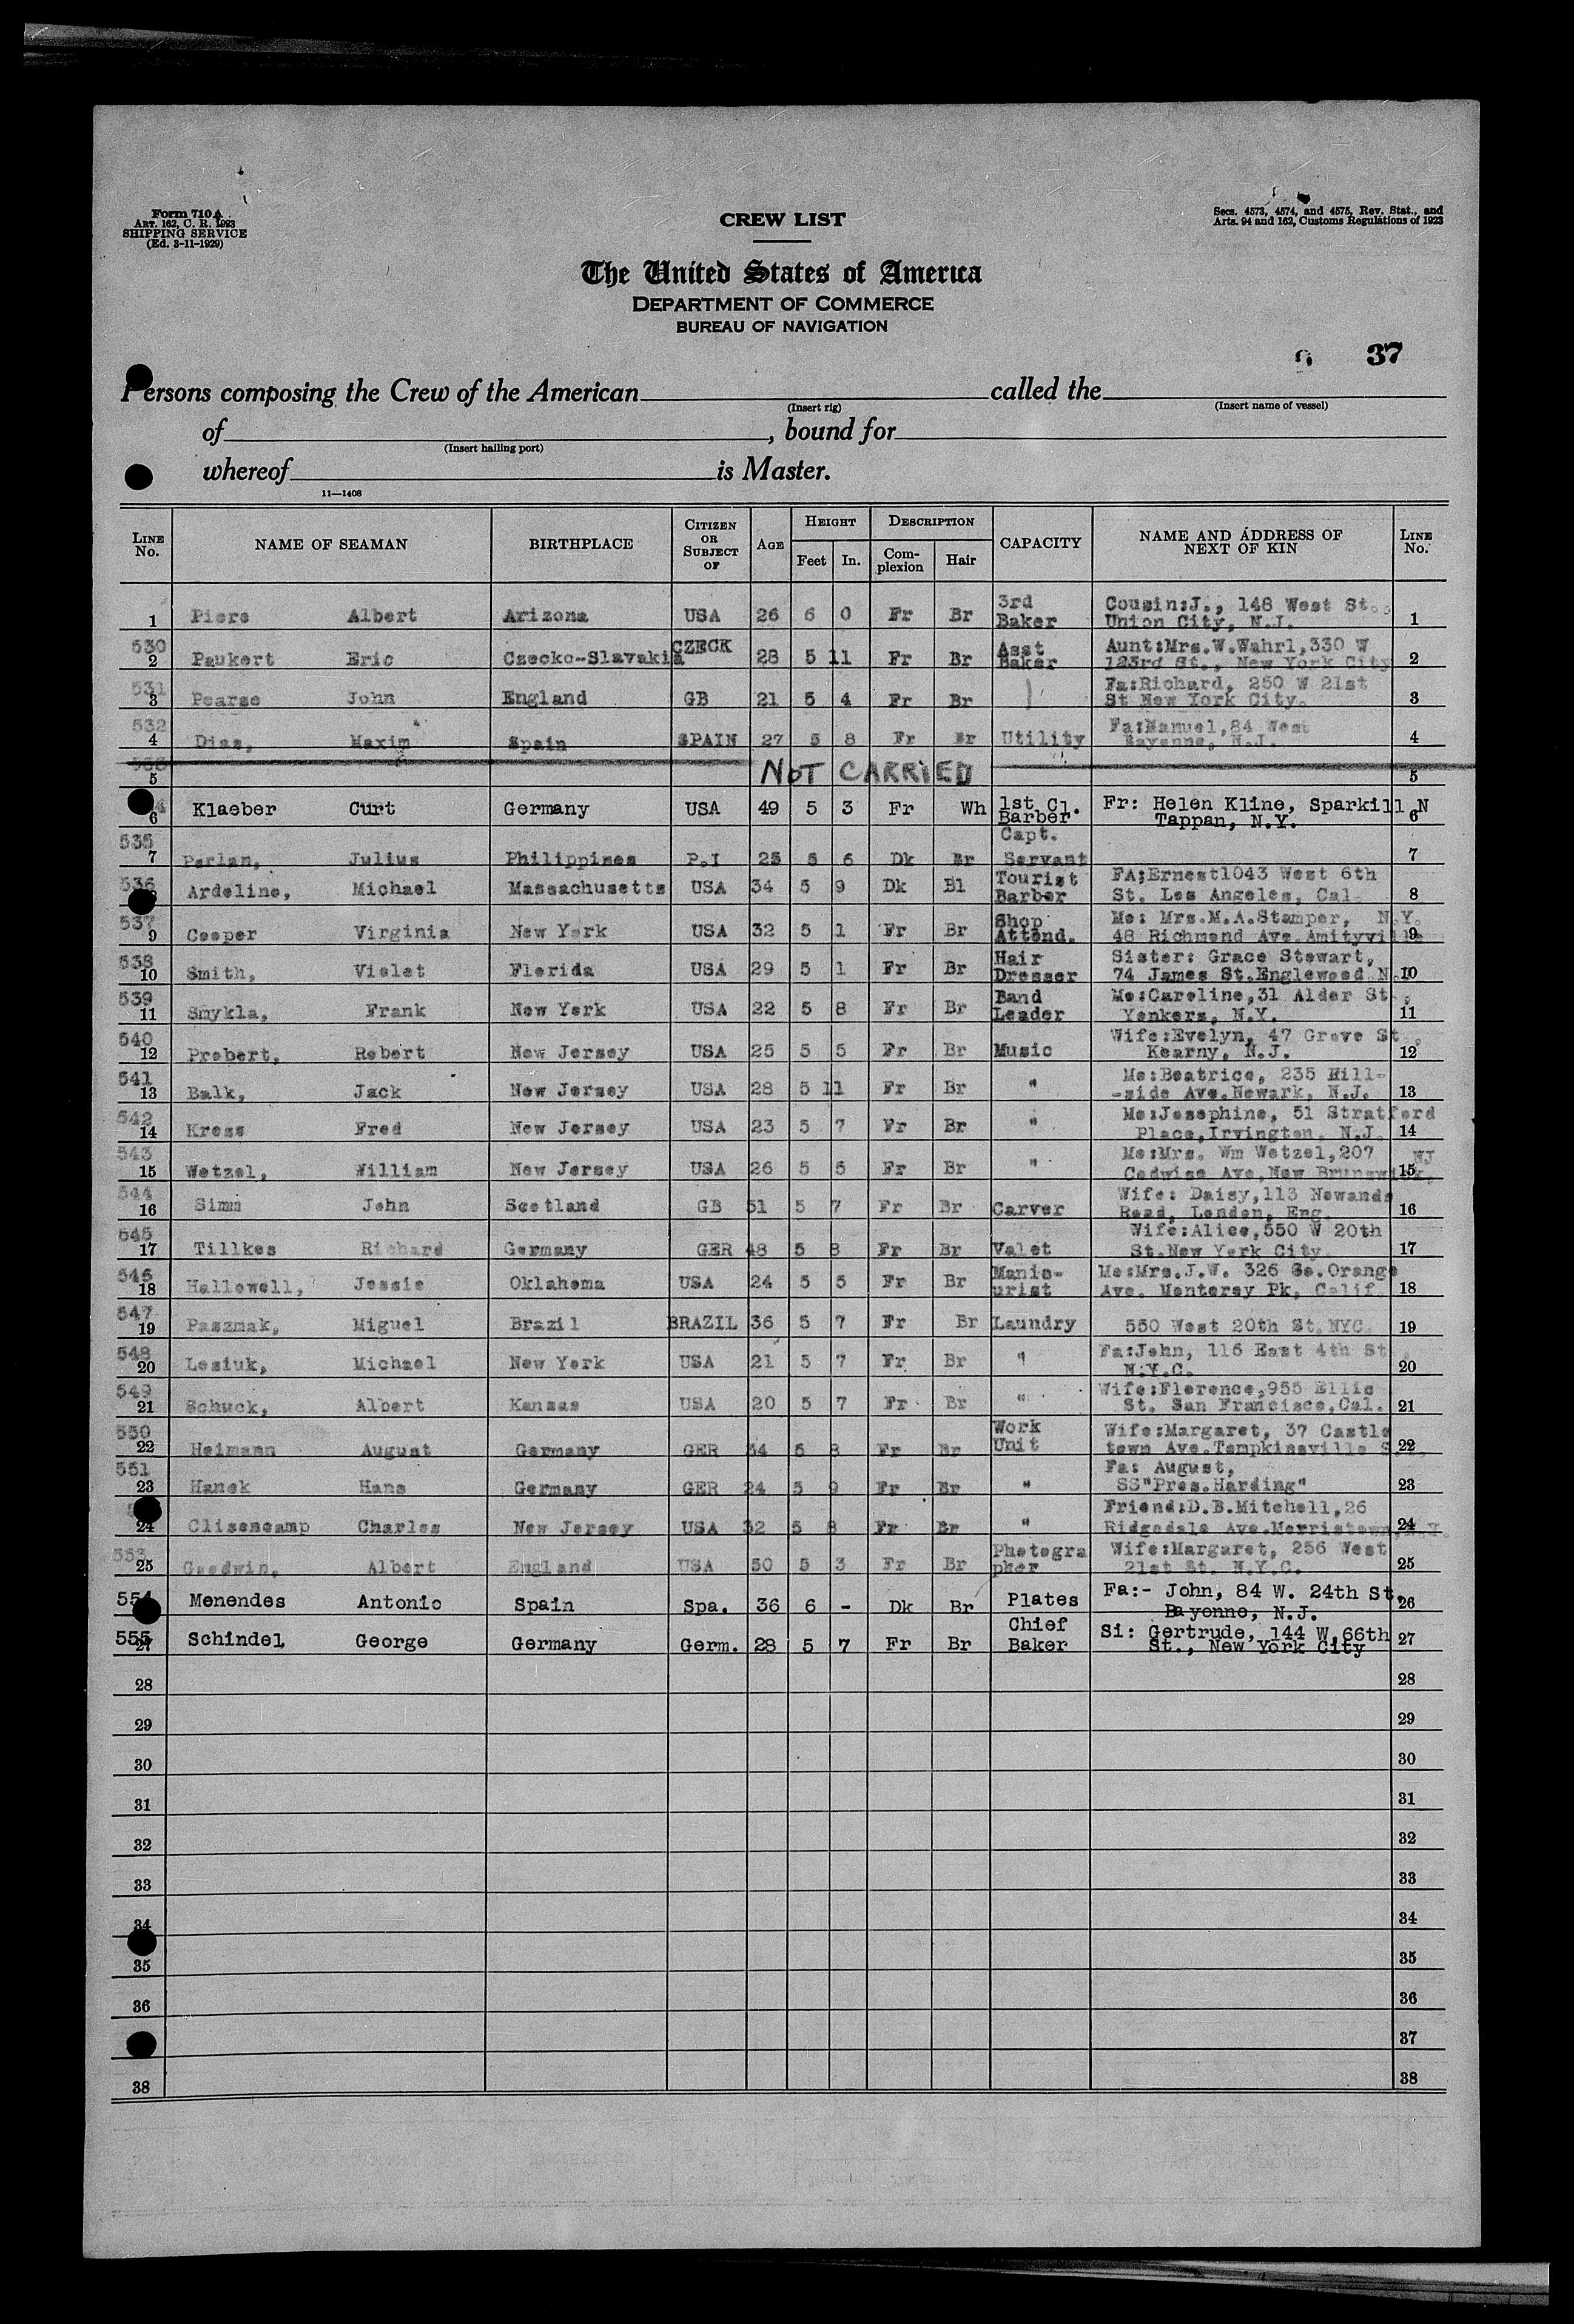 Form 710A
ART. 162, C. R. 1923
SHIPPING SERVICE
(Ed. 3-11-1929)
CREW LIST
Secs. 4573, 4574, and 4575, Rev. Stat., and
Arts. 94 and 162, Customs Regulations of 1923
The United States of America
DEPARTMENT OF COMMERCE
BUREAU OF NAVIGATION
37
Persons composing the Crew of the American called the
(Insert rig) (Insert name of vessel)
of , bound for
(Insert hailing port)
whereof is Master.
11—1408
LINE No. NAME OF SEAMAN BIRTHPLACE CITIZEN OR SUBJECT OF AGE HEIGHT Feet In. DESCRIPTION Complexion Hair CAPACITY NAME AND ADDRESS OF NEXT OF KIN LINE No.
1 Piers Albert Arizona USA 26 6 0 Fr Br 3rd Baker Cousin:J., 148 West St., Union City, N.J. 1
530 2 Paukert Eric Czecko-Slavakia CZECK 28 5 11 Fr Br Asst Baker Aunt:Mrs.W.Wahrl,330 W 123rd St., New York City 2
531 3 Pearse John England GB 21 5 4 Fr Br Fa:Richard, 250 W 21st St New York City. 3
532 4 Dias, Maxim Spain SPAIN 27 5 8 Fr Br Utility Fa:Manuel,84 West Bayonne, N.J. 4
5 NOT CARRIED 5
6 Klaeber Curt Germany USA 49 5 3 Fr Wh 1st Cl. Barber Fr: Helen Kline, Sparkill N Tappan, N.Y. 6
535 7 Perlan, Julius Philippines P.I 25 5 6 Dk Br Capt. Servant 7
536 8 Ardeline, Michael Massachusetts USA 34 5 9 Dk Bl Tourist Barber FA;Ernest1043 West 6th St. Los Angeles, Cal. 8
537 9 Cooper Virginia New York USA 32 5 1 Fr Br Shop Attend. Mo: Mrs.M.A.Stamper, N.Y. 48 Richmond Ave.Amityville 9
538 10 Smith, Violet Florida USA 29 5 1 Fr Br Hair Dresser Sister: Grace Stewart, 74 James St.Englewood N.J. 10
539 11 Smykla, Frank New York USA 22 5 8 Fr Br Band Leader Mo:Caroline,31 Alder St., Yonkers, N.Y. 11
540 12 Probert, Robert New Jersey USA 25 5 5 Fr Br Music Wife:Evelyn, 47 Grove St., Kearny, N.J. 12
541 13 Balk, Jack New Jersey USA 28 5 11 Fr Br " Mo:Beatrice, 235 Hill- -side Ave.Newark, N.J. 13
542 14 Kress Fred New Jersey USA 23 5 7 Fr Br " Mo:Josephine, 51 Stratford Place,Irvington, N.J. 14
543 15 Wetzel, William New Jersey USA 26 5 5 Fr Br " Mo:Mrs. Wm Wetzel,207 NJ Codwise Ave,New Brunswick, 15
544 16 Simm John Scotland GB 51 5 7 Fr Br Carver Wife: Daisy,113 Newands Road, London, Eng. 16
545 17 Tillkes Richard Germany GER 48 5 8 Fr Br Valet Wife:Alice,550 W 20th St.New York City. 17
546 18 Hallowell, Jessie Oklahoma USA 24 5 5 Fr Br Manic- urist Mo:Mrs.J.W. 326 So.Orange Ave. Monterey Pk, Calif 18
547 19 Paszmak, Miguel Brazil BRAZIL 36 5 7 Fr Br Laundry 550 West 20th St.NYC 19
548 20 Lesiuk, Michael New York USA 21 5 7 Fr Br " Fa:John, 116 East 4th St N.Y.C. 20
549 21 Schuck, Albert Kansas USA 20 5 7 Fr Br " Wife:Florence,955 Ellis St. San Francisco,Cal. 21
550 22 Heimann August Germany GER 54 5 8 Fr Br Work Unit Wife:Margaret, 37 Castle town Ave.Tompkinsville S.I. 22
551 23 Hanek Hans Germany GER 24 5 9 Fr Br " Fa: August, SS"Pres.Harding" 23
24 Clisencamp Charles New Jersey USA 32 5 8 Fr Br " Friend:D.B.Mitchell,26 Ridgedale Ave.Morristown,N.J. 24
553 25 Goodwin, Albert England USA 50 5 3 Fr Br Photogra pher Wife:Margaret, 256 West 21st St. N.Y.C. 25
554 Menendes Antonio Spain Spa. 36 6 - Dk Br Plates Fa:- John, 84 W. 24th St, Bayonne, N.J. 26
555 27 Schindel George Germany Germ. 28 5 7 Fr Br Chief Baker Si: Gertrude, 144 W.66th St., New York City 27
28 28
29 29
30 30
31 31
32 32
33 33
34 34
35 35
36 36
37
38 38